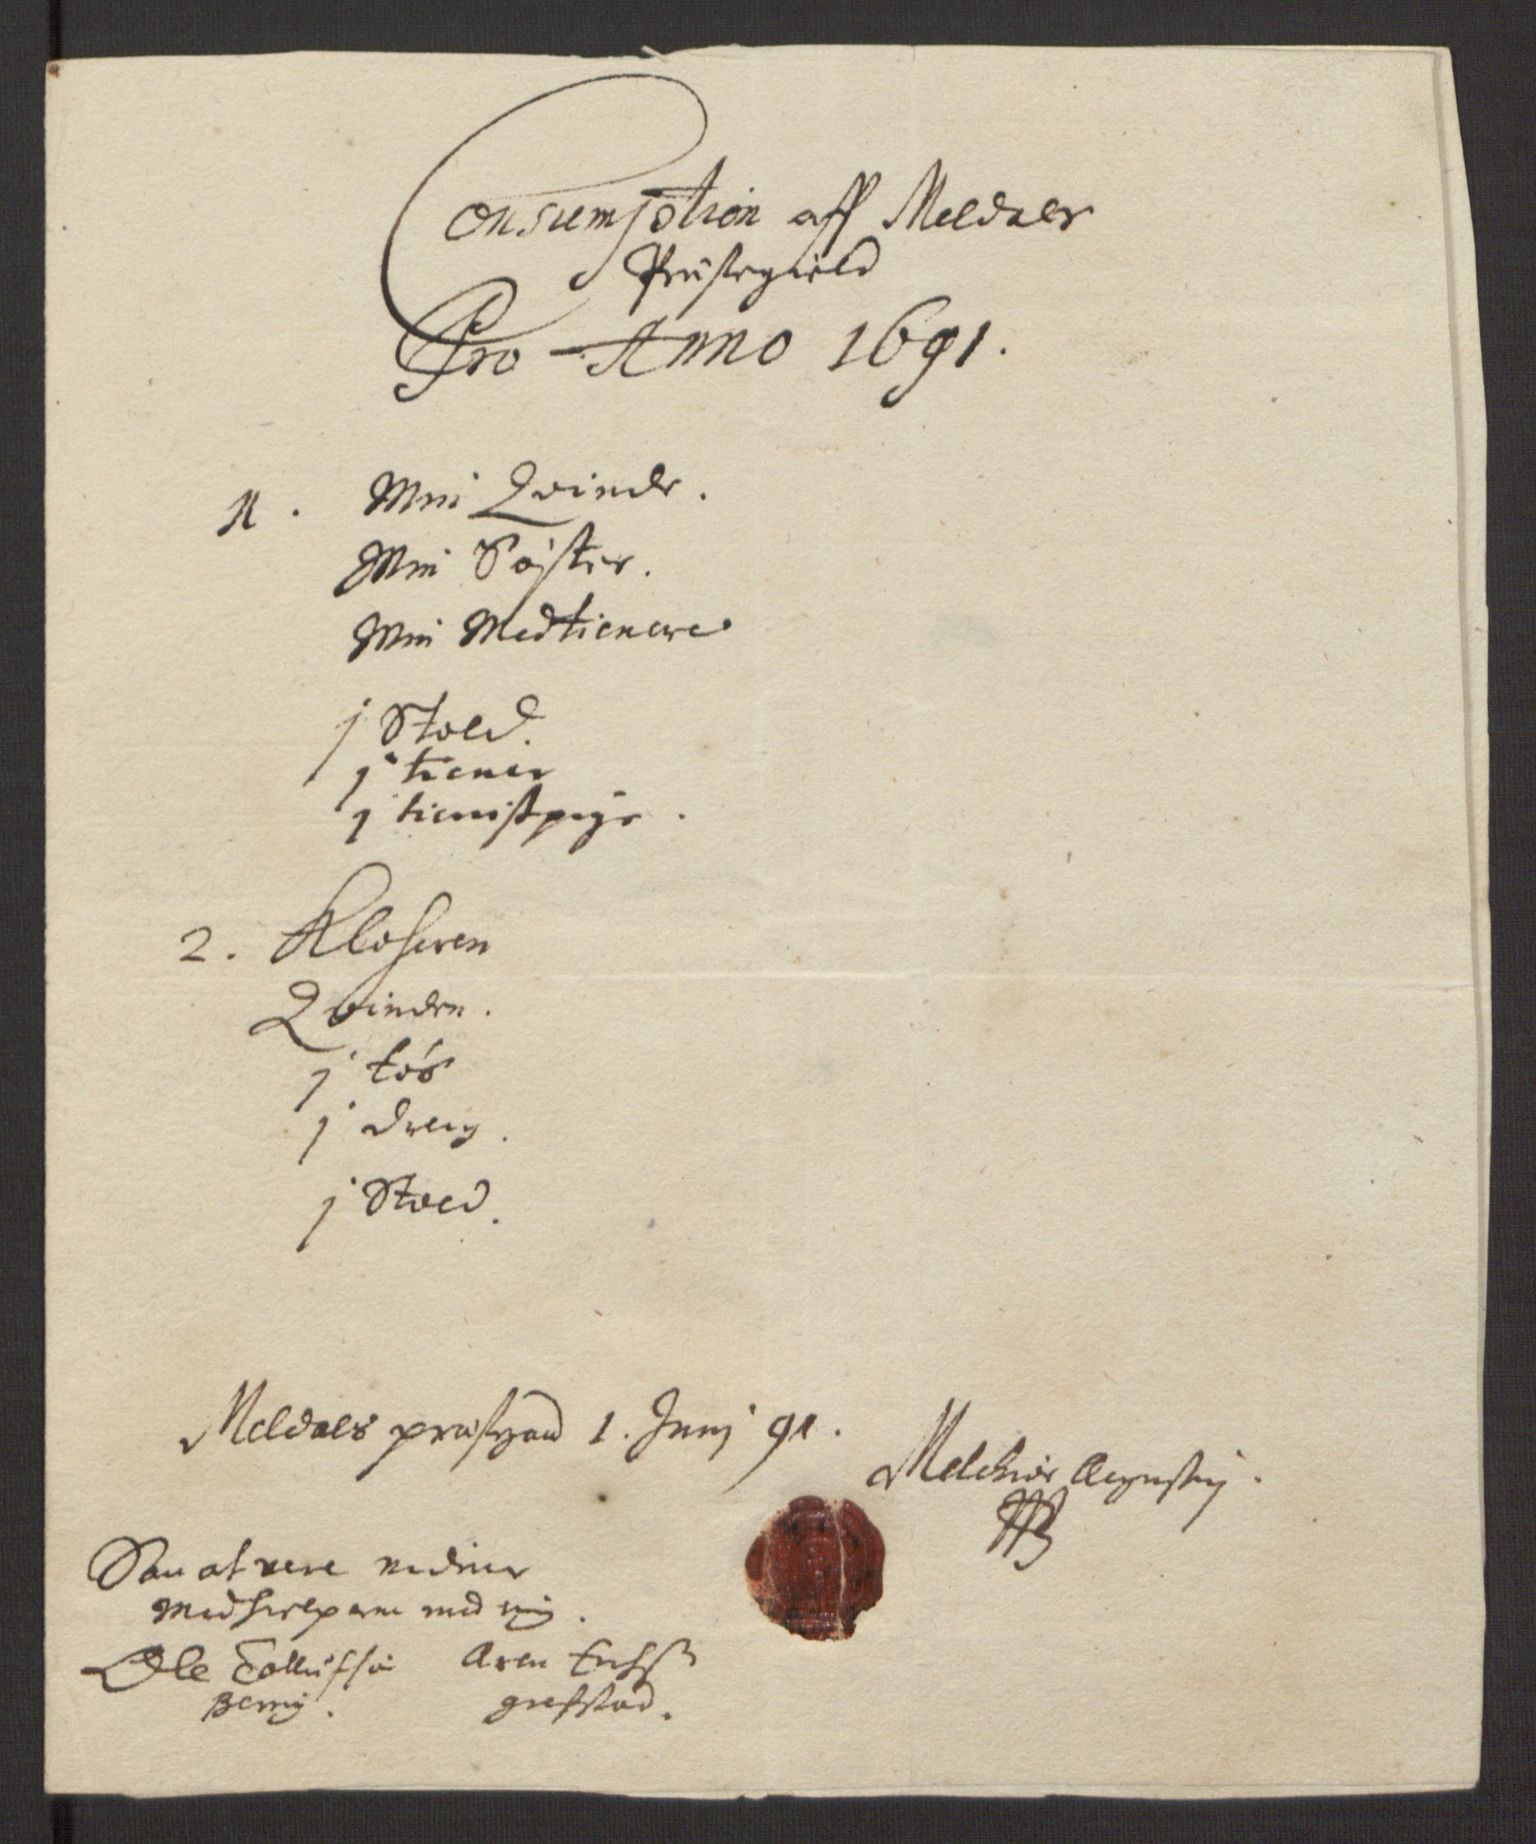 Consumption aff Meldals
Præstegield
Pro Anno 1691.
1. Min Qvinde.
Min Søster.
Min Medtienere
j Stold.
j tiener
j tienistpige.
2. Klokeren
Qvinden.
j tøs
j dreng.
j Stold.
Meldals præstgaard 1. Junj 91.
Melchior Augustinj.
Saa at være vidner
Medhielperne med mig.
Ole Tollufsøn Aren